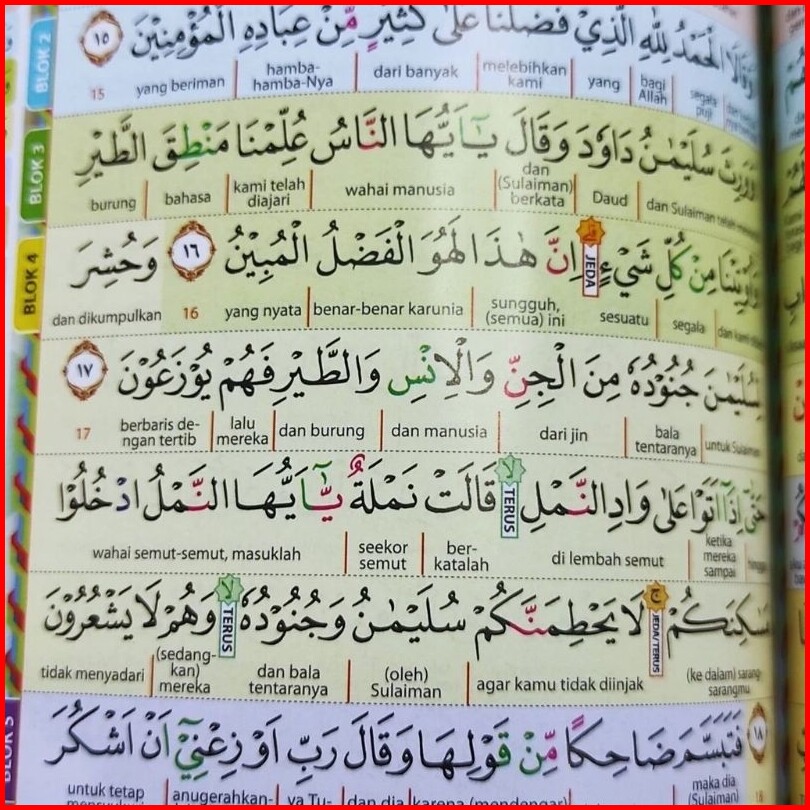 وَقَالَا الْحَمْدُ لِلّٰهِ الَّذِيْ فَضَّلَنَا عَلٰى كَثِيْرٍ مِّنْ عِبَادِهِ الْمُؤْمِنِيْنَ ١٥
segala puji bagi Allah yang melebihkan kami dari banyak hamba-hamba-Nya yang beriman 15
BLOK 2
وَوَرِثَ سُلَيْمٰنُ دَاوٗدَ وَقَالَ يٰٓاَيُّهَا النَّاسُ عُلِّمْنَا مَنْطِقَ الطَّيْرِ
dan Sulaiman telah Daud dan (Sulaiman) berkata wahai manusia kami telah diajari bahasa burung
BLOK 3
وَاُوْتِيْنَا مِنْ كُلِّ شَيْءٍ JEDA اِنَّ هٰذَا لَهُوَ الْفَضْلُ الْمُبِيْنُ ١٦ وَحُشِرَ
segala sesuatu sungguh, (semua) ini benar-benar karunia yang nyata 16 dan dikumpulkan
BLOK 4
لِسُلَيْمٰنَ جُنُوْدُهٗ مِنَ الْجِنِّ وَالْاِنْسِ وَالطَّيْرِ فَهُمْ يُوْزَعُوْنَ ١٧
untuk Sulaiman bala tentaranya dari jin dan manusia dan burung lalu mereka berbaris dengan tertib 17
حَتّٰىٓ اِذَآ اَتَوْا عَلٰى وَادِ النَّمْلِ لا TERUS قَالَتْ نَمْلَةٌ يّٰٓاَيُّهَا النَّمْلُ ادْخُلُوْا
hingga ketika mereka sampai di lembah semut ber-katalah seekor semut wahai semut-semut, masuklah
مَسٰكِنَكُمْ ج JEDA/TERUS لَا يَحْطِمَنَّكُمْ سُلَيْمٰنُ وَجُنُوْدُهٗ لا TERUS وَهُمْ لَا يَشْعُرُوْنَ
(ke dalam) sarang-sarangmu agar kamu tidak diinjak (oleh) Sulaiman dan bala tentaranya (sedang-kan) mereka tidak menyadari
١٨ فَتَبَسَّمَ ضَاحِكًا مِّنْ قَوْلِهَا وَقَالَ رَبِّ اَوْزِعْنِيْٓ اَنْ اَشْكُرَ
18 maka dia (Sulaiman) karena (mendengar) dan dia ya Tu- anugerahkan- untuk tetap
BLOK 5